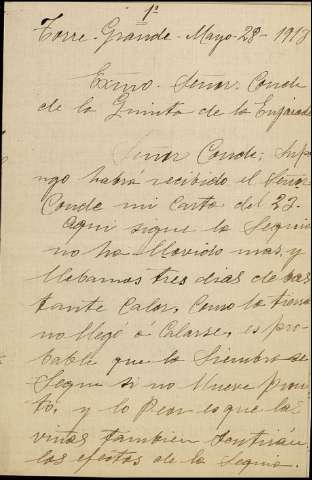 1º
Torre-Grande-Mayo-28-1913
Exmo. Señor: Conde
de la Quinta de la Enjarada
Señor Conde: Supo
ngo habrá recibido el Señor
Conde mi carta del 23-
Aqui sigue la Sequia
no ha llovido mas, y
llebamos tres dias de bas
tante Calor, Como la tierra
no llegó á Calarse, es pro-
bable que la Siembra se
Seque si no llueve pron-
to, y lo Peor es que las
viñas tambien sentirán
los efectos de la Sequia.